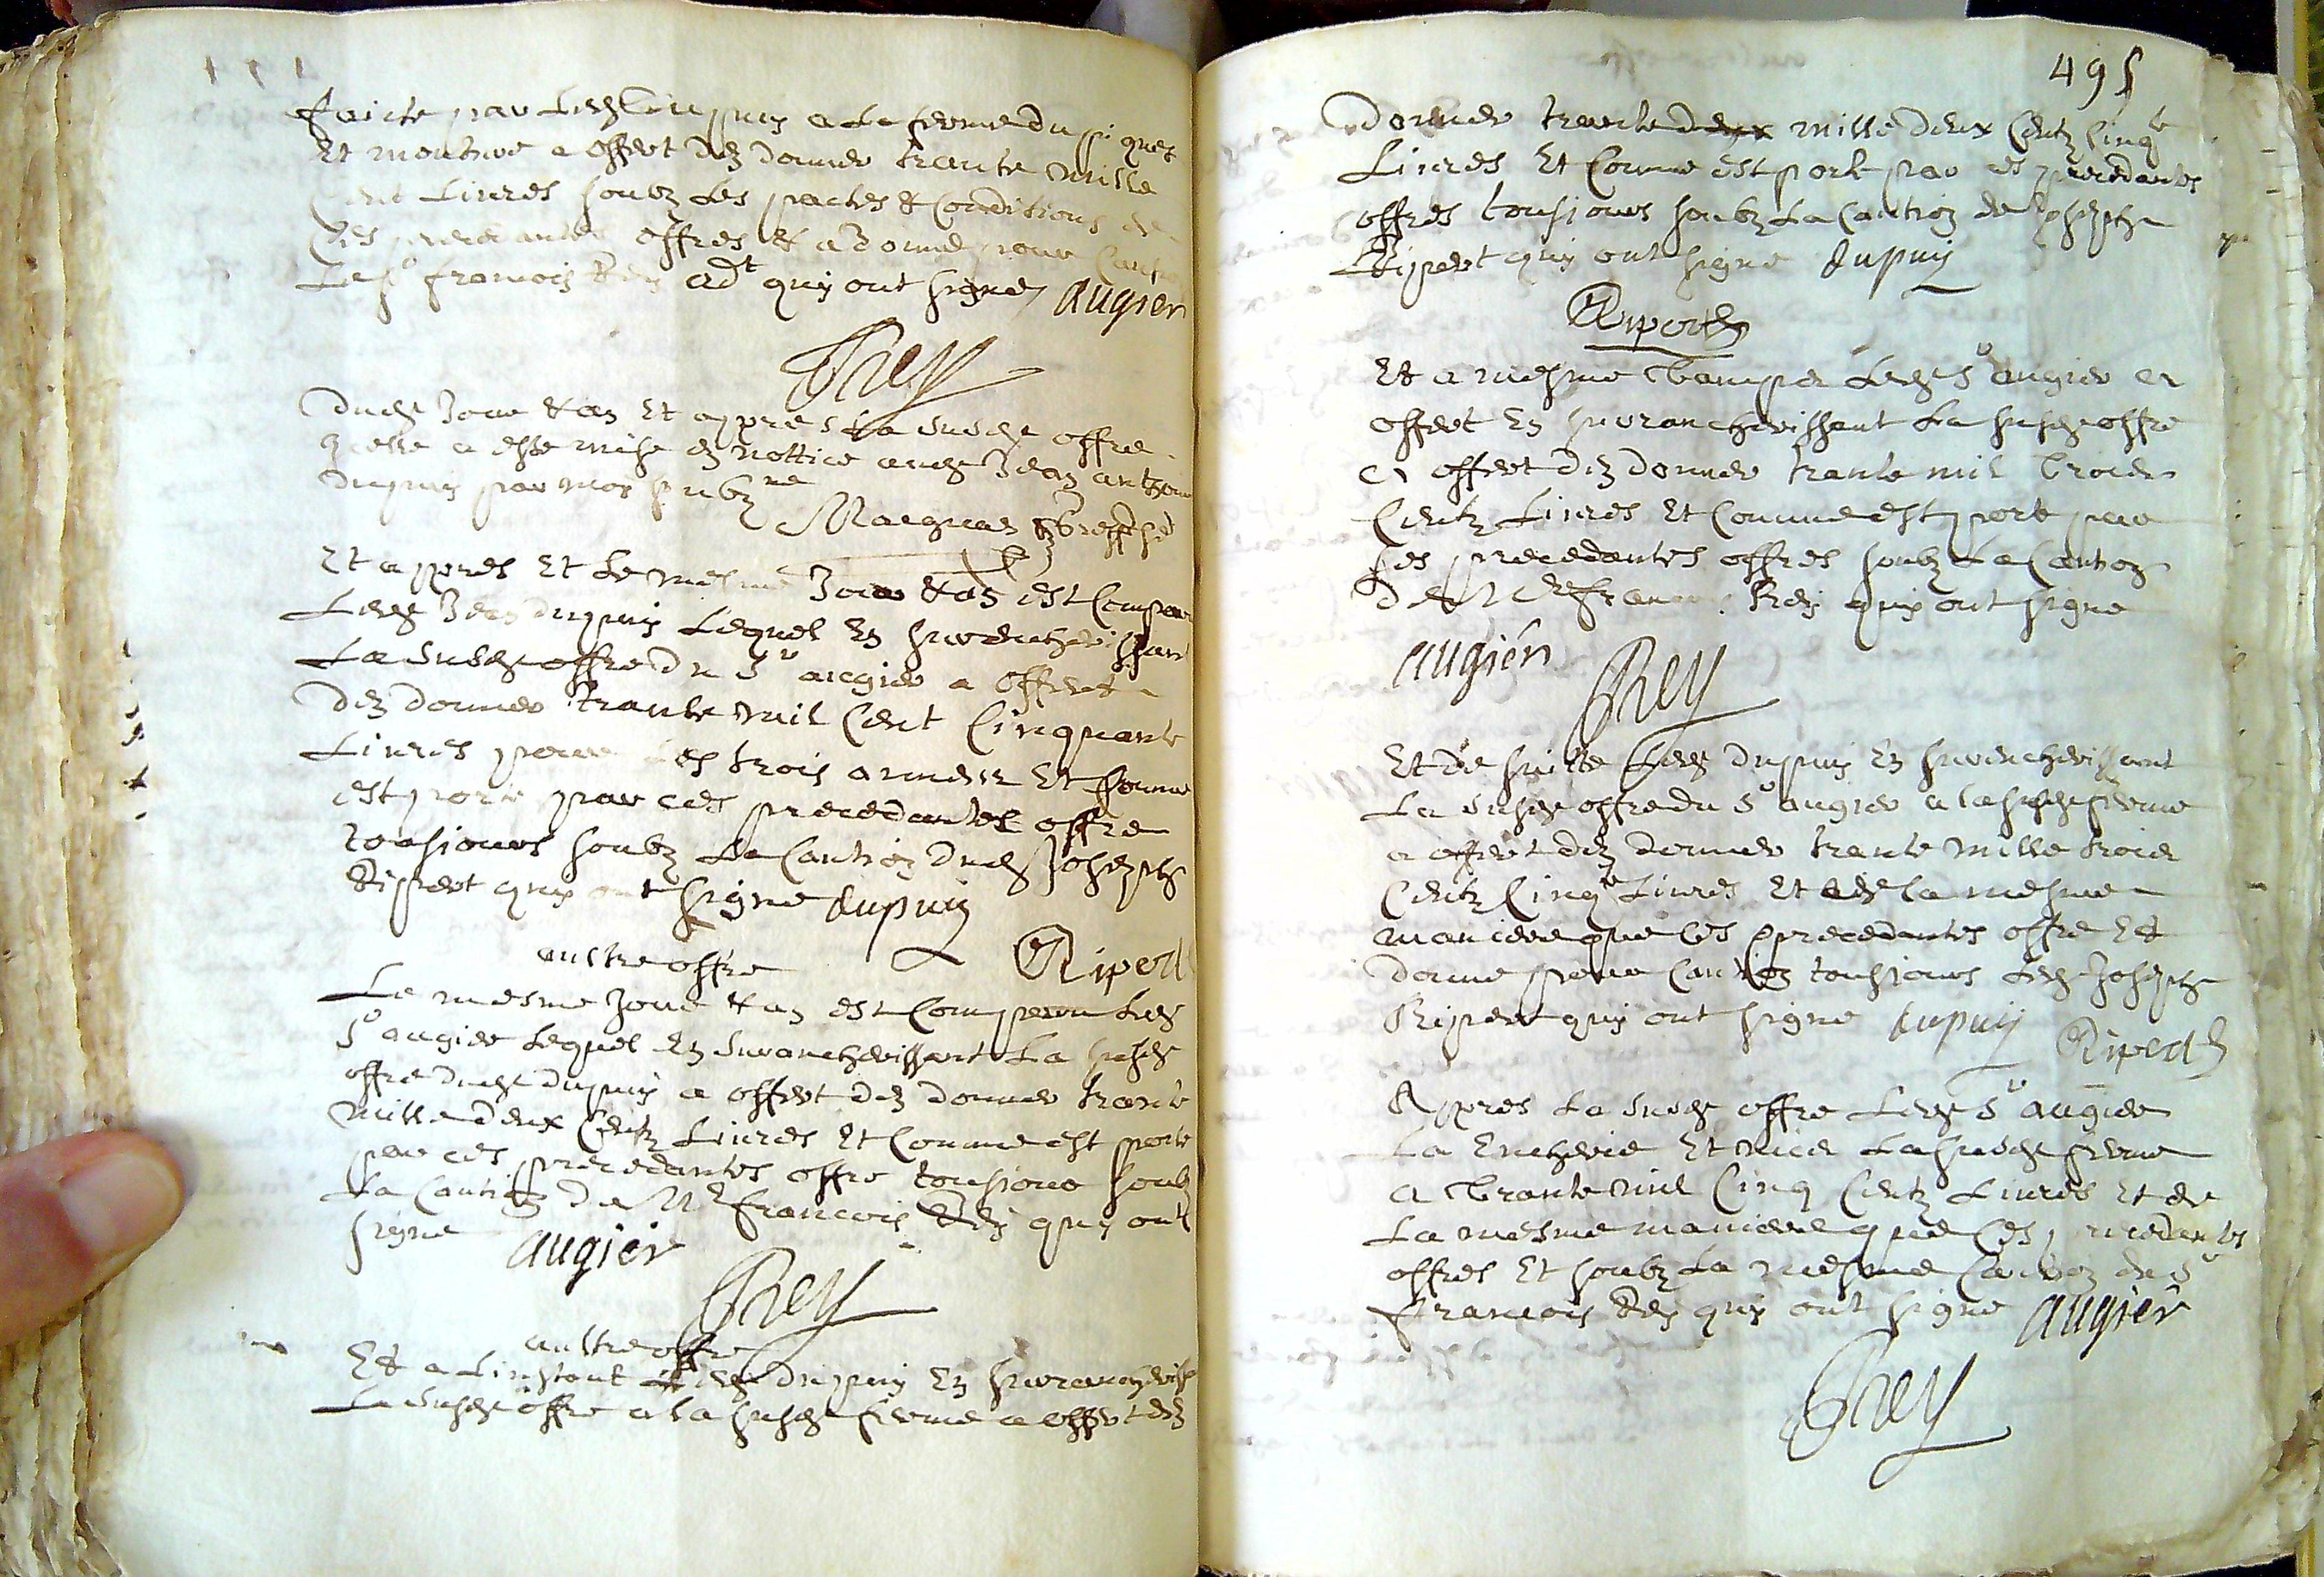 faicte par ledt dupuy a la ferme du piquet
Et mouture a offert den donner trante mille
Cent Liures soubz les pactes & Conditions de
Ces precedantes offres & a donné pour Cautio
Le sr francois Rey adt quy ont signe Augier
Rey
Dudt Jour & an Et appres la susdt offre
Icelle a este mise en nottice audt Jean anthoine
dupuy par moy soubzne
Maignan greffier
Et appres Et le mesme Jour & an est Compareu
Ledt Jean dupuy Lequel En surencherissant
La susdt offre du Sr augier a offert
den donner trante mil Cent Cinquante
Liures pour les trois annees Et Comme
est porté par ces precedantes offre
tousiours soubz La Caution dudt Joseph
Ripert quy ont signe dupuy
Ripert
aultre offre
Le mesme Jour & an est Compareu Ledt
Sr augier Lequel En surancherissant La susdt
offre dudt dupuy a offert den donner trante
mille deux Centz Liures Et Comme est porté
par ces precedantes offre tousiours soubz
La Caution de Me francois Rey quy ont
signe Augier
Rey
aultre offre
Et a Linstant Ledt dupuy En surancheriss
La susdt offre a la susdt ferme a offert den
495
donner trante mille deux Centz Cinqte
Liures Et Comme est porté par ces precedantes
offres tousiours soubz La Caution de Joseph
Ripert quy ont signe dupuy
Riperts
Et a mesme tamps Ledt Sr augier a
offert En surancherissant La susdt offre
a offert den donner trante mil trois
Centz Liures Et Comme est porté par
ses precedantes offres soubz La Caution
de Me francois Rey quy ont signe
Augier
Rey
Et de suitte Ledt dupuy En surencherissant
La susdt offre du Sr augier a la susdt ferme
a offert den donner trante mille trois
Centz Cinqte Liures Et de la mesme
maniere que ces precedantes offre Et
donne pour Caution tousiours Ledt Joseph
Ripert quy ont signe dupuy
Riperts
Appres La susdt offre Ledt Sr augier
La Encherie Et mise La susdt ferme
a trante mil Cinq Centz Liures Et de
La mesme maniere que Ces precedantes
offres Et soubz La mesme Caution du Sr
francois Rey quy ont signe Augier
Rey